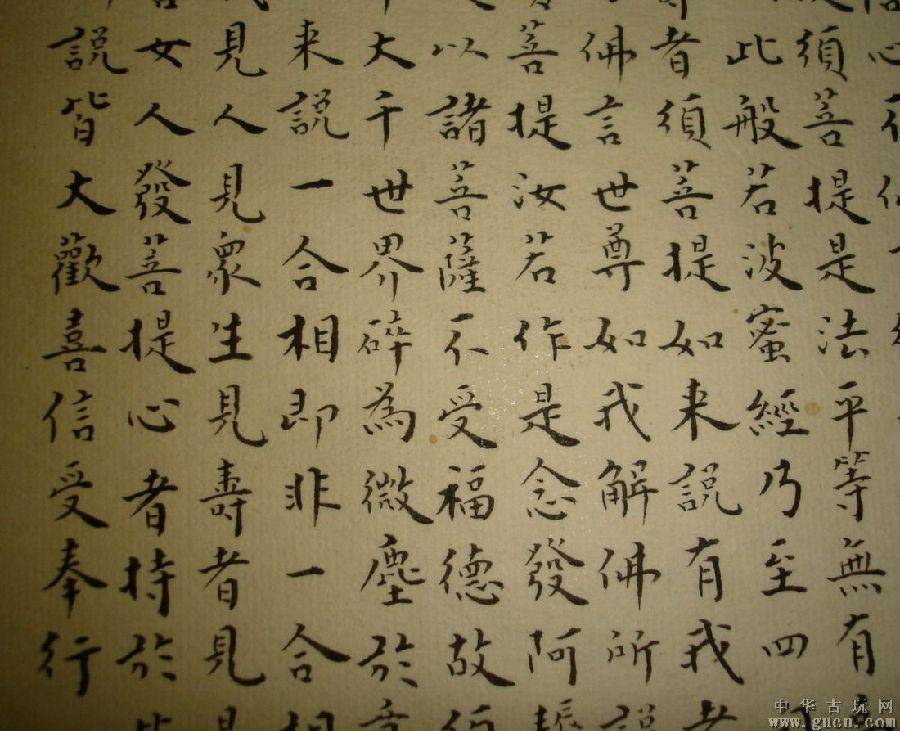 心
須菩提是法平等無有
此般若波蜜經乃至四
者須菩提如来説有我者
佛言世尊如我解佛所説
菩提汝若作是念發阿耨
以諸菩薩不受福德故
大千世界碎為微塵於意
来説一合相即非一合相
見人見衆生見壽者見
女人發菩提心者持於此
説皆大歡喜信受奉行
中华古玩网
www.gucn.com